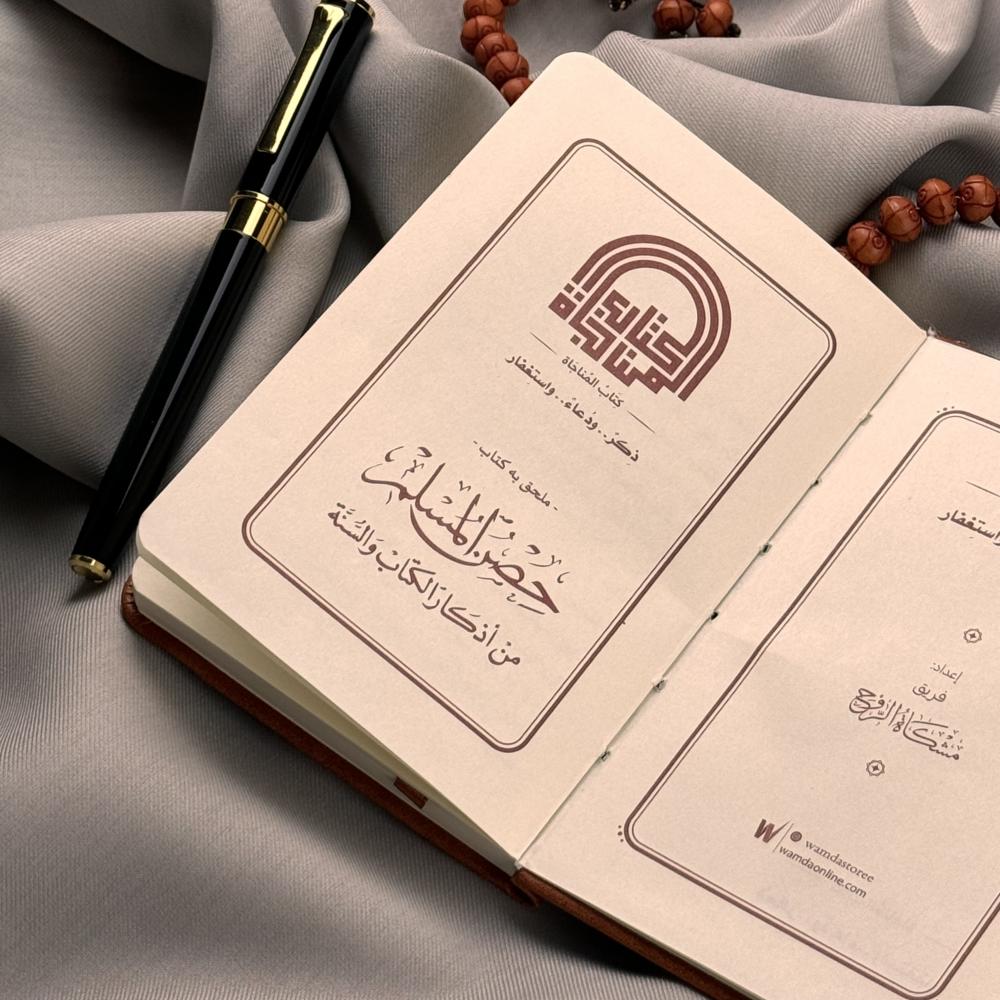 كتاب
المناجاة
كتَابُ المُناجَاة
ذِكرٌ.. ودُعاءٌ.. واستِغفار
- ملحق به كتاب -
حصن المسلم
من أذكار الكتاب والسنة
واستِغفار
إعداد:
فريق
مشكاة الروح
W
wamdastoree
wamdaonline.com